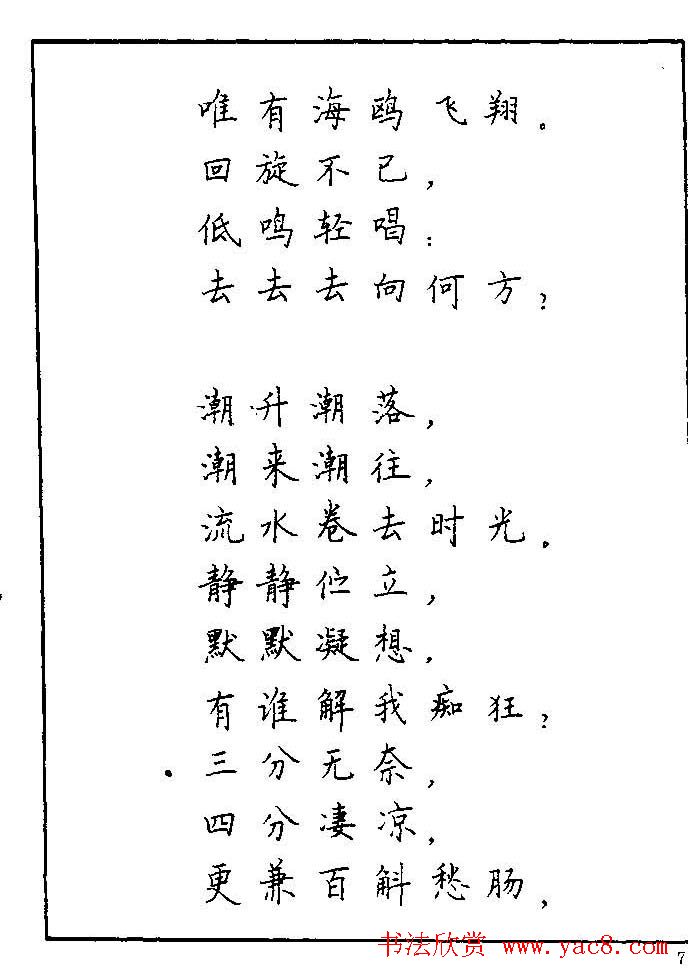 唯有海鸥飞翔。
回旋不已，
低鸣轻唱：
去去去向何方？
潮升潮落，
潮来潮往，
流水卷去时光。
静静伫立，
默默凝想，
有谁解我痴狂？
三分无奈，
四分凄凉，
更兼百斛愁肠，
书法欣赏 www.yac8.com
7